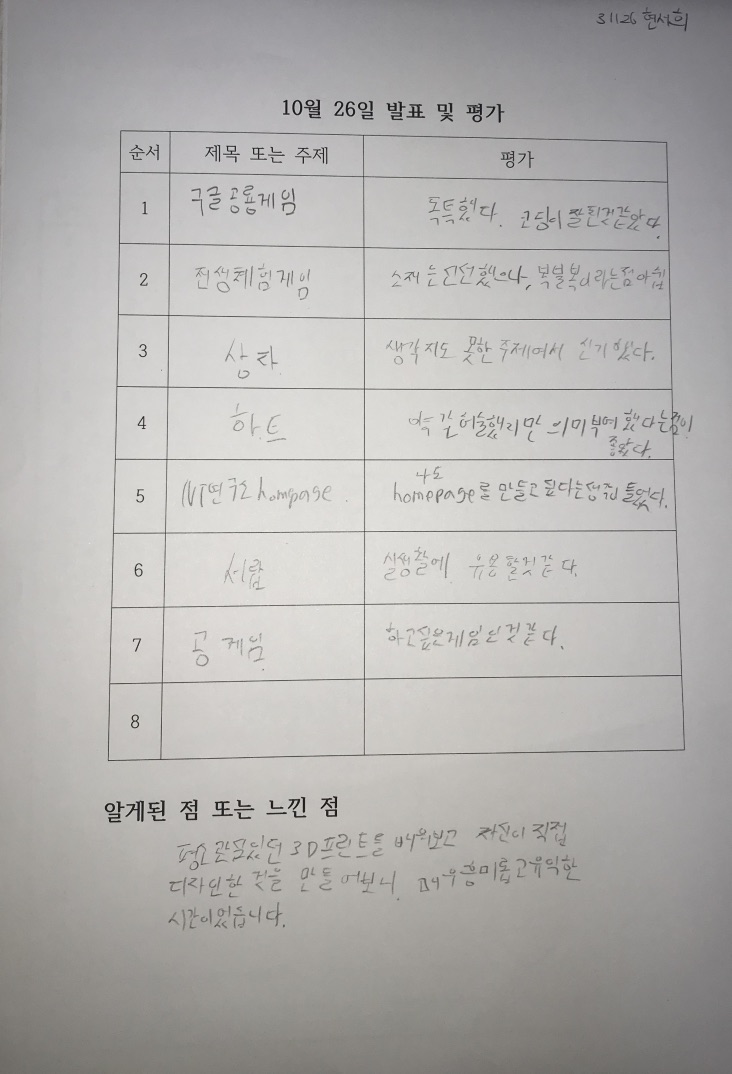 31126 현서희
10월 26일 발표 및 평가
순서 제목 또는 주제 평가
1 구글공룡게임 독특했다. 코딩이 잘된것같았다.
2 전생체험게임 소재는 신선했으나, 복불복이라는점 아쉽
3 상자 생각지도 못한 주제여서 신기했다.
4 하트 약간 허술했지만 의미부여했다는점이
좋았다.
5 NT연구소 hompage. 나도
homepage를 만들고 싶다는생각이 들었다.
6 서랍 실생활에 유용할것같다.
7 공 게임 하고싶은게임인것같다.
8
알게된 점 또는 느낀 점
평소 관심있던 3D프린트를 배워보고 자신이 직접
디자인한 것을 만들어보니, 매우흥미롭고유익한
시간이었습니다.